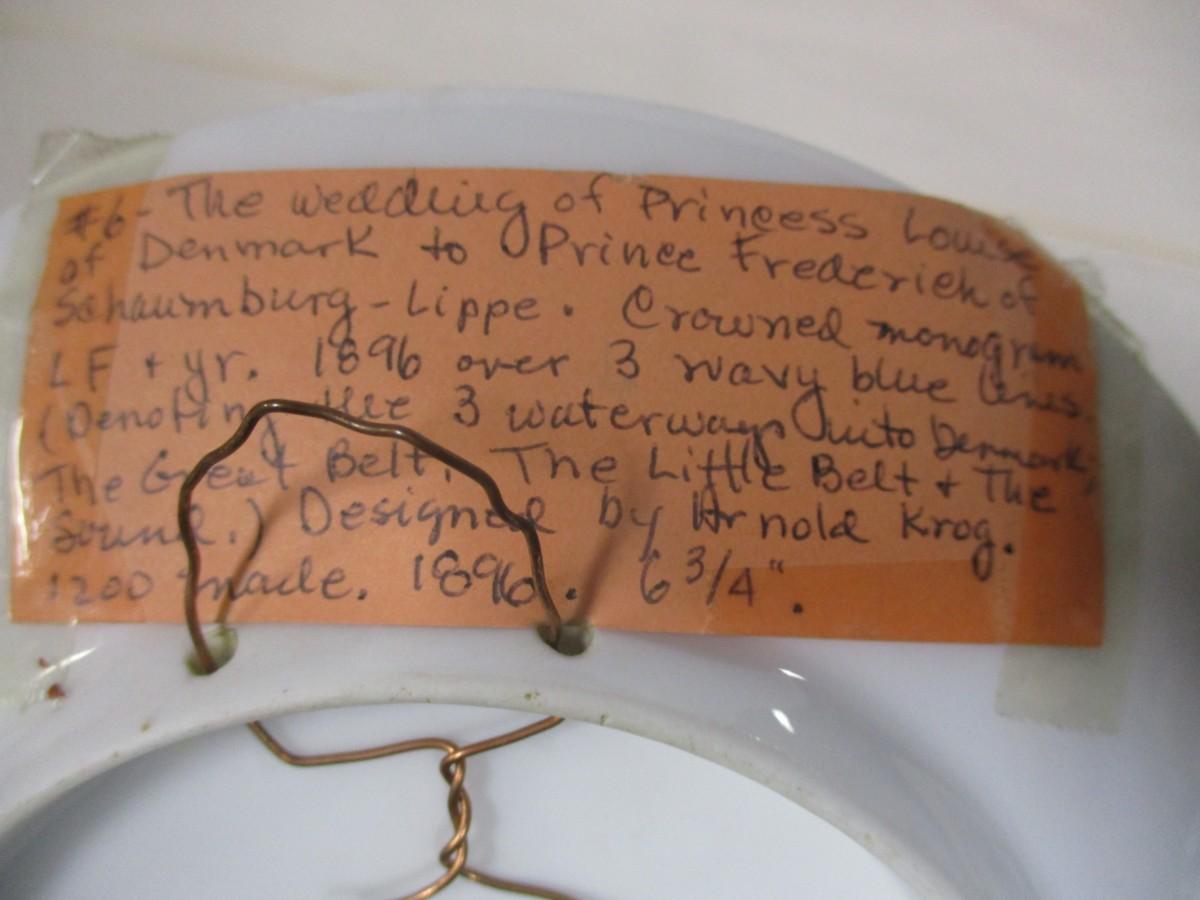 #6 - The wedding of Princess Louise
of Denmark to Prince Frederich of
Schaumburg-Lippe. Crowned monogram
LF + yr. 1896 over 3 wavy blue lines.
(Denoting the 3 waterways into Denmark,
The Great Belt, The Little Belt + The
Sound.) Designed by Arnold Krog.
1200 made. 1896. 6 3/4".